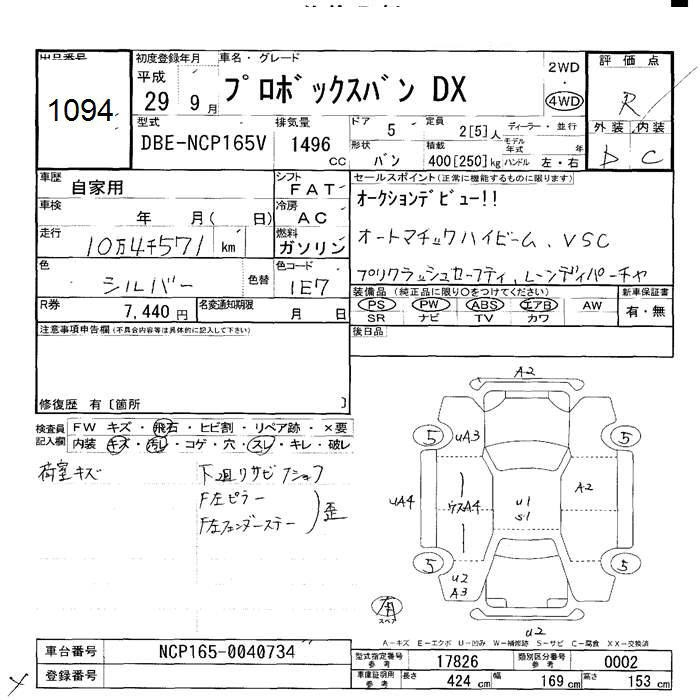 出品番号 初度登録年月 車名・グレード 評価点
1094
平成 29 9月
プロボックスバン DX
2WD
・
4WD
R
型式 排気量 ドア 定員 ディーラー・並行 外装 内装
DBE-NCP165V 1496 cc 5 2[5]人 モデル年式 年
形状 積載
バン 400[250]kg ハンドル 左・右
D C
車歴 自家用 シフト FAT
セールスポイント(正常に機能するものに限ります)
オークションデビュー!!
車検 年 月( 日) 冷房 AC
走行 10万4千571 km 燃料 ガソリン
オートマチックハイビーム、VSC
色 シルバー 色替 色コード 1E7
プリクラッシュセーフティ、レーンディパーチャ
R券 7,440円 名変通知期限 月 日
装備品(純正品に限り○をつけてください) 新車保証書
PS PW ABS エアB AW 有・無
SR ナビ TV カワ
注意事項申告欄(不具合内容等は具体的に記入して下さい)
後日品
修復歴 有〔箇所 〕
検査員記入欄 FW キズ・飛石・ヒビ割・リペア跡・×要
内装 キズ・汚レ・コゲ・穴・スレ・キレ・破レ
荷室キズ
下廻りサビ
F左ピラー
F左フェンダーステー
歪
A2
5 uA3 5
uA4 A4 u1 S1 A2
5 u2 A3 5
スペア 有
u2
A-キズ E-エクボ U-凹み W-補修跡 S-サビ C-腐食 XX-交換済
車台番号 NCP165-0040734
登録番号
型式指定番号 参考 17826 類別区分番号 参考 0002
車庫証明用 参考 長さ 424 cm 幅 169 cm 高さ 153 cm